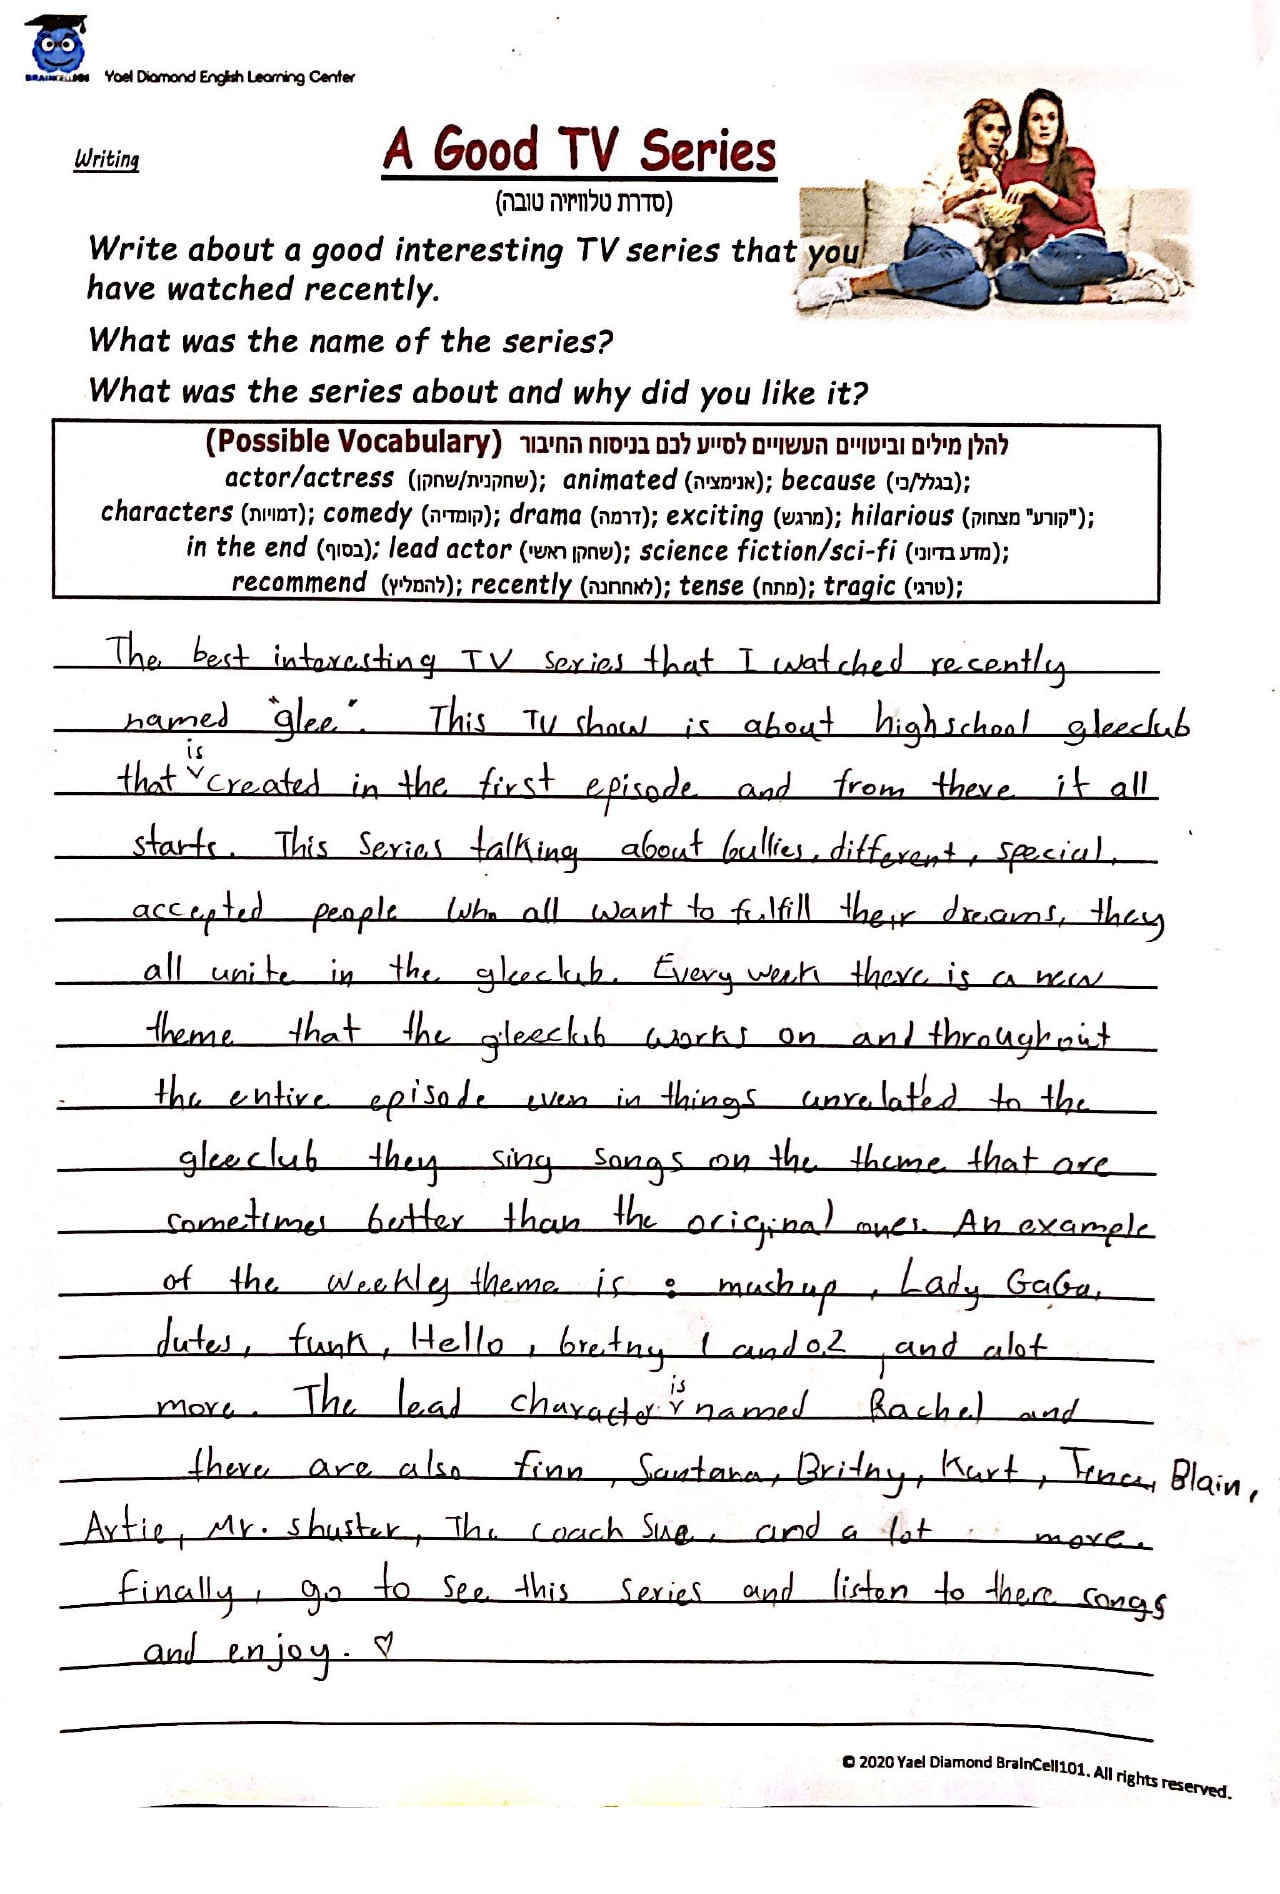 BRAINCELL101
Yael Diamond English Learning Center
Writing
A Good TV Series
(סדרת טלוויזיה טובה)
Write about a good interesting TV series that you
have watched recently.
What was the name of the series?
What was the series about and why did you like it?
(Possible Vocabulary) להלן מילים וביטויים העשויים לסייע לכם בניסוח החיבור
actor/actress (שחקנית/שחקן); animated (אנימציה); because (בגלל/כי);
characters (דמויות); comedy (קומדיה); drama (דרמה); exciting (מרגש); hilarious (קורע" מצחוק");
in the end (בסוף); lead actor (שחקן ראשי); science fiction/sci-fi (מדע בדיוני);
recommend (להמליץ); recently (לאחרונה); tense (מתח); tragic (טרגי);
The best interesting TV series that I watched recently
named "glee". This TV show is about highschool gleeclub
that is created in the first episode and from there it all
starts. This Series talking about bullies, different, special,
accepted people who all want to fulfill their dreams, they
all unite in the gleeclub. Every week there is a new
theme that the gleeclub works on and throughout
the entire episode even in things unrelated to the
gleeclub they sing songs on the theme that are
sometimes better than the original ones. An example
of the weekly theme is : mashup, Lady GaGa,
dutes, funk, Hello, bretny 1 and 0.2, and alot
more. The lead character is named Rachel and
there are also finn, Santana, Britny, Kurt, Tina, Blain,
Artie, Mr. shuster, The coach Sue, and a lot more.
finally, go to see this series and listen to there songs
and enjoy. ♡
© 2020 Yael Diamond BrainCell101. All rights reserved.